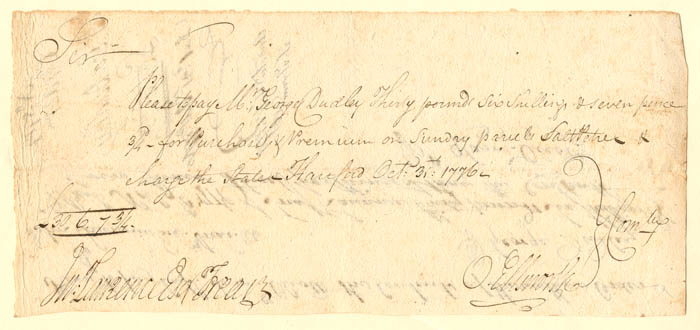 Sir
Please to pay Mr. George Dudley Thirty pounds Six Shillings & seven pence
3/4 for Purchase & Premium on Sunday parcels Saltpetre &
Charge the State Hartford Octr. 31st 1776
£30. 6. 7 3/4
Comtee
Jno. Lawrence Esq Treasr